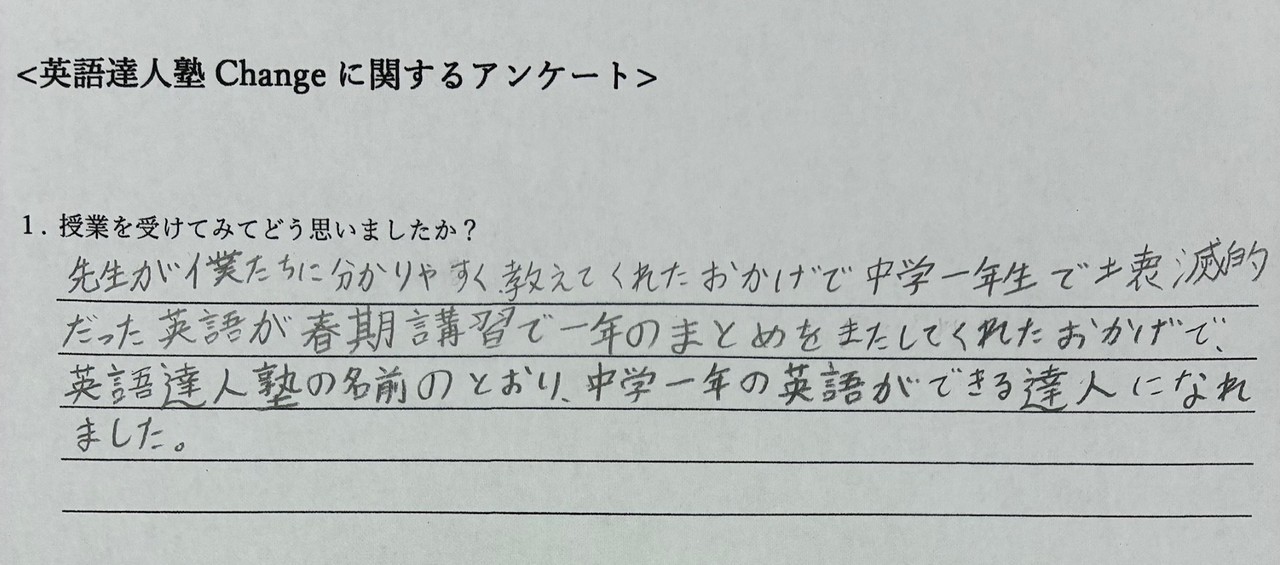 <英語達人塾 Change に関するアンケート>
1. 授業を受けてみてどう思いましたか？
先生が僕たちに分かりやすく教えてくれたおかげで中学一年生で壊滅的
だった英語が春期講習で一年のまとめをまたしてくれたおかげで、
英語達人塾の名前のとおり、中学一年の英語ができる達人になれ
ました。